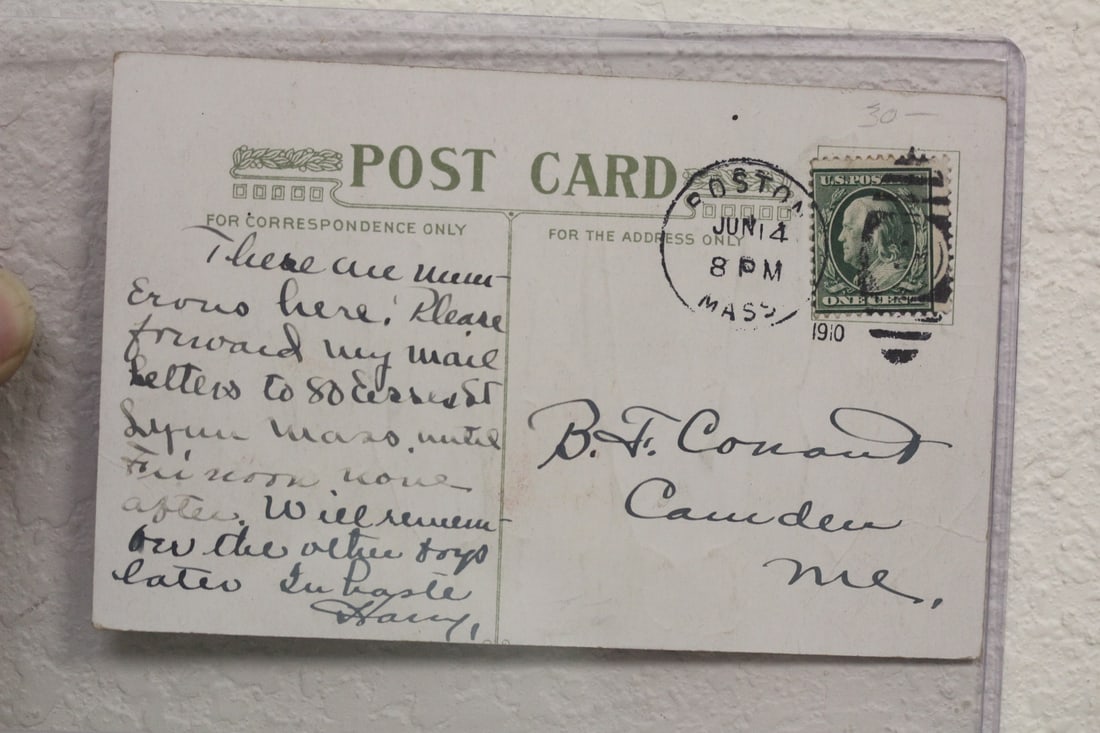 30 —
POST CARD
FOR CORRESPONDENCE ONLY
FOR THE ADDRESS ONLY
BOSTON
JUN 14
8 PM
MASS
1910
U.S. POS
ONE CENT
These are num-
erous here. Please
forward my mail
letters to 80 St
Lynn Mass, until
Fri noon none
after. Will remem-
ber the other boys
later In haste
Harry,
B. F. Conant
Camden
Me,